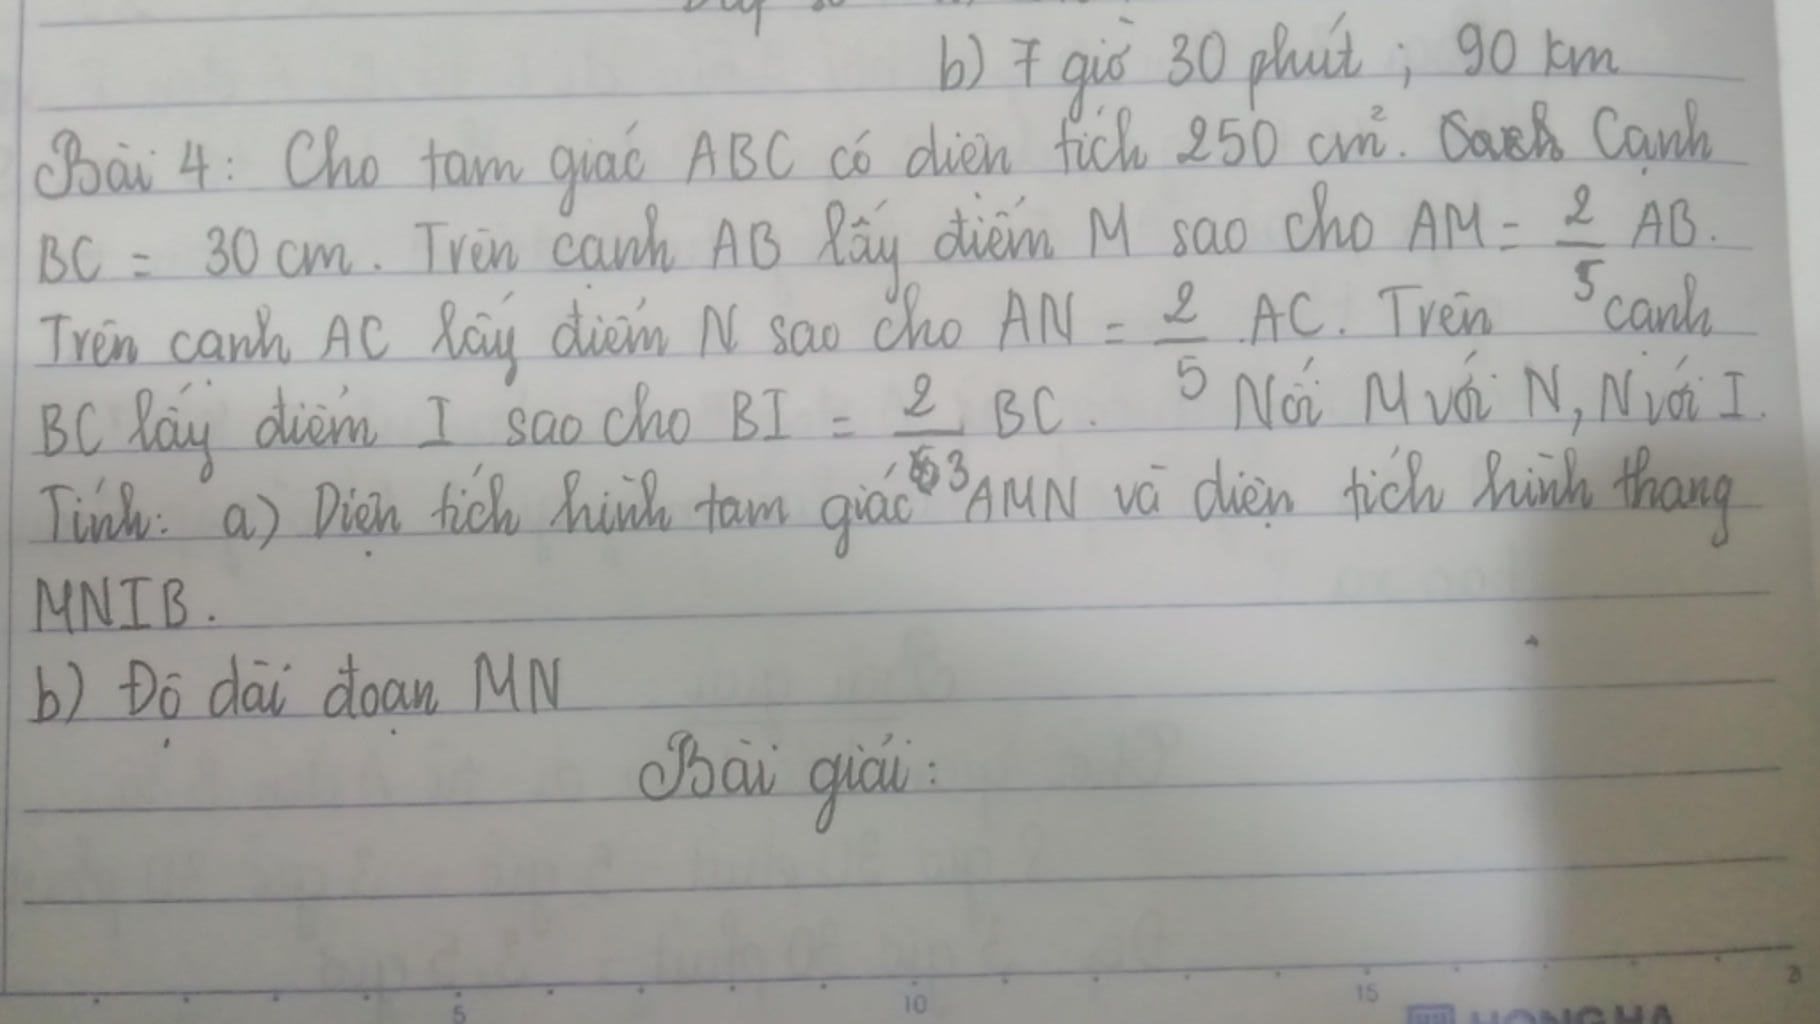 b) 7 giờ 30 phút ; 90 km
Bài 4: Cho tam giác ABC có diện tích 250 cm². Cạnh
BC = 30 cm. Trên cạnh AB lấy điểm M sao cho AM = 2/5 AB.
Trên cạnh AC lấy điểm N sao cho AN = 2/5 AC. Trên cạnh
BC lấy điểm I sao cho BI = 2/3 BC. Nối M với N, N với I.
Tính: a) Diện tích hình tam giác AMN và diện tích hình thang
MNIB.
b) Độ dài đoạn MN
Bài giải:
5 10 15
HONG HA